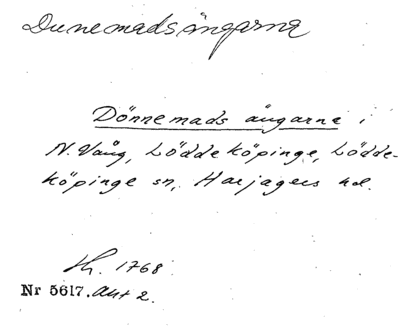 Dunemadsängarna
Dönnemads ängarne i
N. Vång, Löddeköpinge, Lödde-
köpinge sn, Harjagers hd.
Lh. 1768.
Nr 5617. Akt 2.